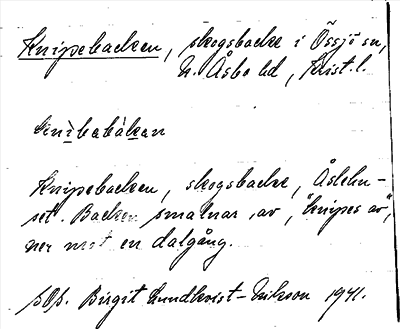 Knipebacken, skogsbacke i Össjö sn,
N. Åsbo hd, Krist. l.
Knipebacken, skogsbacke, Åslehu-
set. Backen smalnar av, "knipes av",
ner mot en dalgång.
Birgit Lundkvist-Erikson 1941.